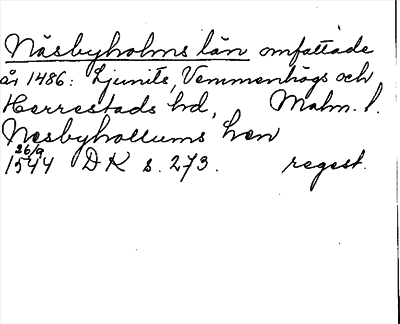 Näsbyholms län omfattade
år 1486: Ljunits, Vemmenhögs och
Herrestads hd, Malm. l.
Nesbyhollums len
26/9
1544 DK s. 273. regest.